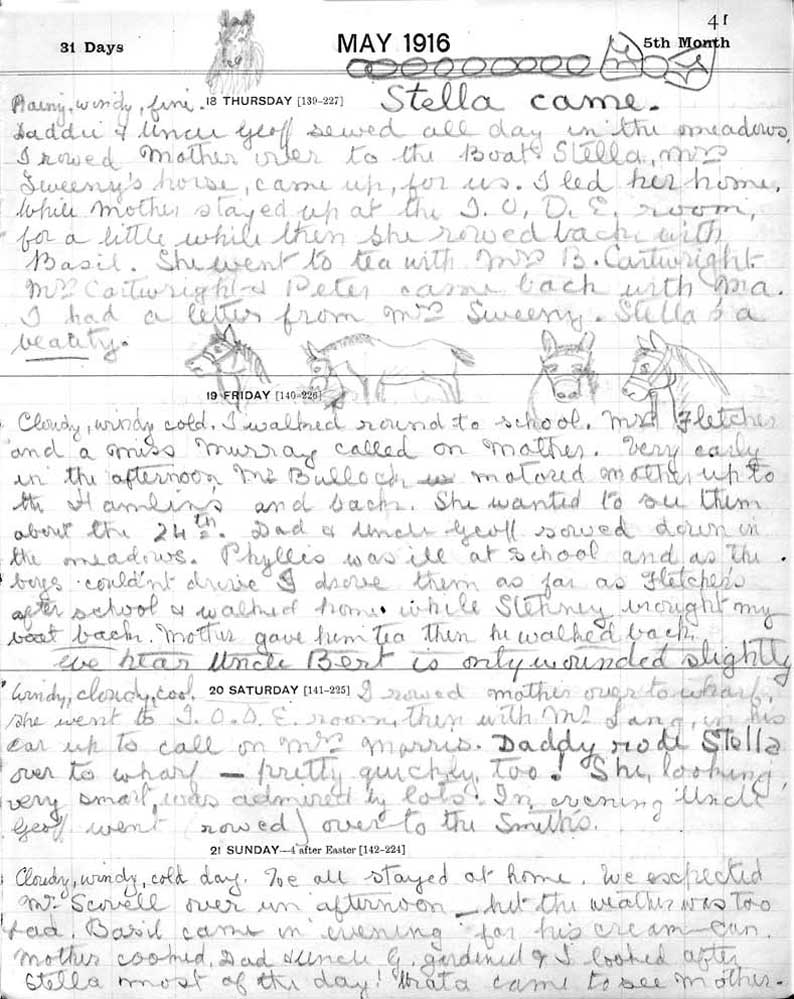 41
31 Days MAY 1916 5th Month
Rainy, windy, fine. 18 THURSDAY [139-227] Stella came.
Daddie & Uncle Geoff sewed all day in the meadows,
I rowed Mother over to the Boat. Stella, Mrs
Sweeny's horse, came up, for us. I led her home,
while Mother stayed up at the I. O. D. E. room,
for a little while then she rowed back with
Basil. She went to tea with Mrs B. Cartwright.
Mrs Cartwright & Peter came back with Ma.
I had a letter from Mrs Sweeny. Stella's a
beauty.
19 FRIDAY [140-226]
Cloudy, windy cold. I walked round to school. Mrs Fletcher
and a Miss Murray called on Mother. Very early
in the afternoon Mr Bullock motored Mother up to
the Hamlin's and back. She wanted to see them
about the 24th. Dad & Uncle Geoff sowed down in
the meadows. Phyllis was ill at school and as the
boys couldn't drive I drove them as far as Fletchers
after school & walked home. while Stehney brought my
boat back. Mother gave him tea then he walked back.
We hear Uncle Bert is only wounded slightly
Windy, cloudy, cool. 20 SATURDAY [141-225] I rowed mother over to wharf,
she went to I.O.D.E. room, then with Mr Lang, in his
car up to call on Mrs Morris. Daddy rode Stella
over to wharf — pretty quickly, too! She, looking
very smart, was admired by lots. In evening Uncle
Geoff went (rowed) over to the Smith's.
21 SUNDAY—4 after Easter [142-224]
Cloudy, windy, cold day. We all stayed at home. We expected
Mr Scovell over in afternoon — but the weather was too
bad. Basil came in evening for his cream-can.
Mother cooked, Dad & Uncle G. gardened & I looked after
Stella most of the day! Wrata came to see Mother.